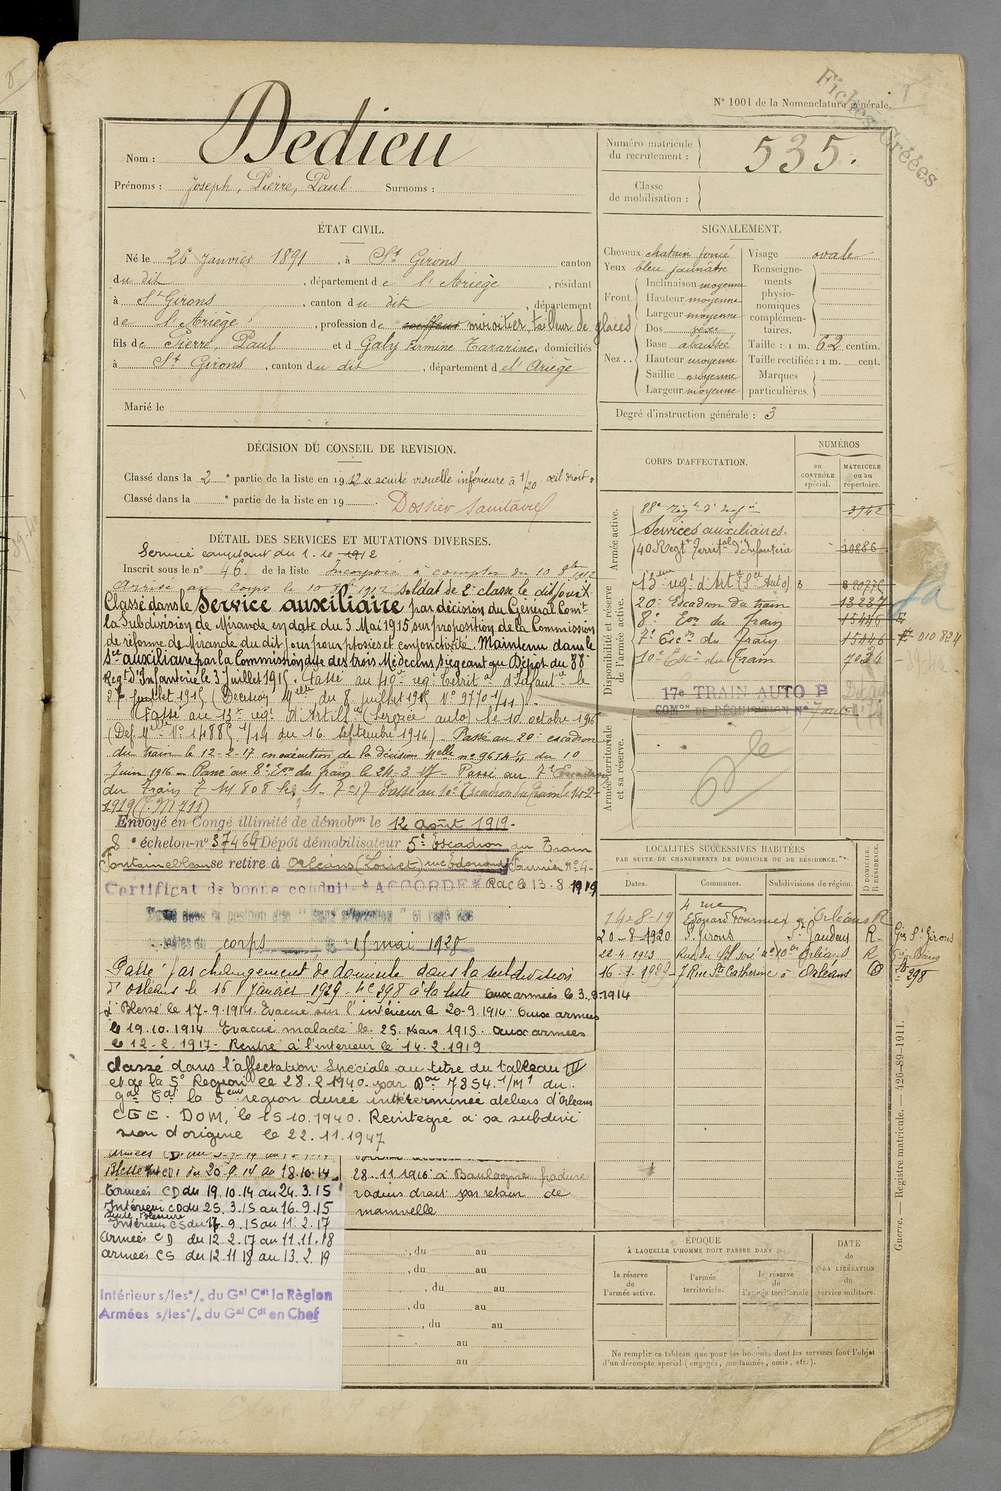 N° 1001 de la Nomenclature générale.
Fiches Créées
Nom : Dedieu
Prénoms : Joseph, Pierre, Paul Surnoms :
Numéro matricule du recrutement : 535.
Classe de mobilisation :
ÉTAT CIVIL.
Né le 26 Janvier 1891, à St Girons canton
du dit, département de l'Ariège, résidant
à St Girons, canton du dit, département
de l'Ariège, profession de coiffeur miroitier, tailleur de glaces
fils de Pierre, Paul et d Galy Firmine Tazarine, domiciliés
à St Girons, canton du dit, département de l'Ariège
Marié le
SIGNALEMENT.
Cheveux chatain foncé
Yeux bleu jaunatre
Front. Inclinaison moyenne
Hauteur moyenne
Largeur moyenne
Nez. Dos
Base abaissé
Hauteur moyenne
Saillie moyenne
Largeur moyenne
Visage ovale
Renseignements physionomiques complémentaires.
Taille : 1 m. 62 centim.
Taille rectifiée : 1 m. cent.
Marques particulières.
Degré d'instruction générale : 3
DÉCISION DU CONSEIL DE REVISION.
Classé dans la 2e partie de la liste en 1912 acuité visuelle inférieure à 1/20 œil droit
Classé dans la e partie de la liste en 19
Dossier Sanitaire
DÉTAIL DES SERVICES ET MUTATIONS DIVERSES.
Service comptant du 1. 10 1912
Inscrit sous le n° 46. de la liste Incorporé à compter du 10 8bre 1912
Arrivé au corps le 10 8bre 1912 soldat de 2e classe le dit jour
Classé dans le Service auxiliaire par décision du Général Comt
la Subdivision de Mirande en date du 3 Mai 1915 sur proposition de la Commission
de réforme de Mirande du dit jour pour ptosies et conjonctivite. Maintenu dans le
Sce auxiliaire par la Commission dite des trois Médecins siégeant au Dépot du 88e
Regt d'Infanterie le 3 Juillet 1915. Passé au 40e regt territal d'Infanterie le
27 Juillet 1915 (Decision Melle du 8 juillet 1915 N° 9770 1/11)
Passé au 13e regt d'Artillie (Service auto) le 10 octobre 1916
du 16 Septembre 1916) - Passé au 20e escadron
du train le 12-2-17 en exécution de la décision Melle n° 9614 1/4 du 10
Juin 1916 - Passé au 8e Eon du train le 24-3-17 - Passé au 7e Escadron
du Train
1919
Envoyé en Congé illimité de démobon le 12 août 1919.
8e échelon n° 37464 Dépôt démobilisateur 5e Escadron du Train
Fontainebleau se retire à Orléans (Loiret) rue Edouard Fournier N° 4.
Certificat de bonne conduite "ACCORDÉ" Rac le 13.8.1919
corps le 15 mai 1920
Passé par changement de domicile dans la subdivision
d'Orléans le 16 Janvier 1929 - N° 398 à la liste aux armées le 3.9.1914
Blessé le 17-9-1914. Evacué sur l'intérieur le 20-9-1914. aux armées
le 19.10.1914 Evacué malade le 25 Mars 1915. aux armées
le 12-2-1917 - Rentré à l'intérieur le 14.2.1919
classé dans l'affectation Spéciale au titre du tableau III
et de la 5e Région le 28.2.1940. par Don 7354.1/M1 du
gal Cdt la 5eme région durée indéterminée ateliers d'Orléans
DOM, le 15.10.1940. Reintegré à sa subdivi
sion d'origine le 22.11.1947
Blessé CD du 20.9.14 au 18.10.14
Armées CD du 19.10.14 au 24.3.15
Intérieur CD du 25.3.15 au 16.9.15
Suite Blessure
Intérieur CS du 17.9.15 au 11.2.17
armées CD du 12.2.17 au 11.11.18
armées CS du 12.11.18 au 13.2.19
Intérieur s/les °/. du Gal Cdt la Région
Armées s/les °/. du Gal Cdt en Chef
28-11-1916 à Boulogne fracture
radius droit par retour de
manivelle
, du au
, du au
, du au
, du au
, du au
au
au
CORPS D'AFFECTATION.
NUMÉROS
au CONTRÔLE spécial.
MATRICULE ou au répertoire.
Armée active.
88e Régt d'Infie 3742
Services auxiliaires.
40 Regt Territal d'Infanterie 10886
Disponibilité et réserve de l'armée active.
13eme regt d'Artie (Sce Auto)
20e Escadron du train 13237
8e Eon du Train 15446
7e Esc. du Train 15446
10e Esc. du Train 7034
17e TRAIN AUTO B
COMON DE RÉQUISITION N°
Armée territoriale et sa réserve.
LOCALITÉS SUCCESSIVES HABITÉES
PAR SUITE DE CHANGEMENTS DE DOMICILE OU DE RÉSIDENCE.
Dates. Communes. Subdivisions de région. D DOMICILE. R RÉSIDENCE.
14-8-19 4 rue Edouard Fournier Orléans R
20-8-1920 St Girons St Gaudens R
Orléans R
16-1-1929 7 Rue Ste Catherine à Orléans D
N° 398
ÉPOQUE
À LAQUELLE L'HOMME DOIT PASSER DANS
la réserve de l'armée active.
l'armée territoriale.
la réserve de l'armée territoriale
DATE de LA LIBÉRATION du service militaire.
Ne remplir ce tableau que pour les hommes dont les services font l'objet
d'un décompte spécial (engagés, condamnés, omis, etc.).
Guerre. — Registre matricule. — 426-89-1911.